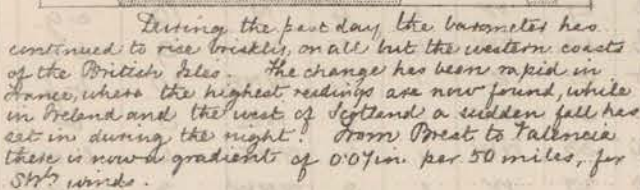 During the past day, the barometer has
continued to rise briskly, on all but the western coasts
of the British Isles. The change has been rapid in
France, where the highest readings are now found, while
in Ireland and the west of Scotland a sudden fall has
set in during the night. From Brest to Valencia
there is now a gradient of 0.07in. per 50 miles, for
SWly winds.